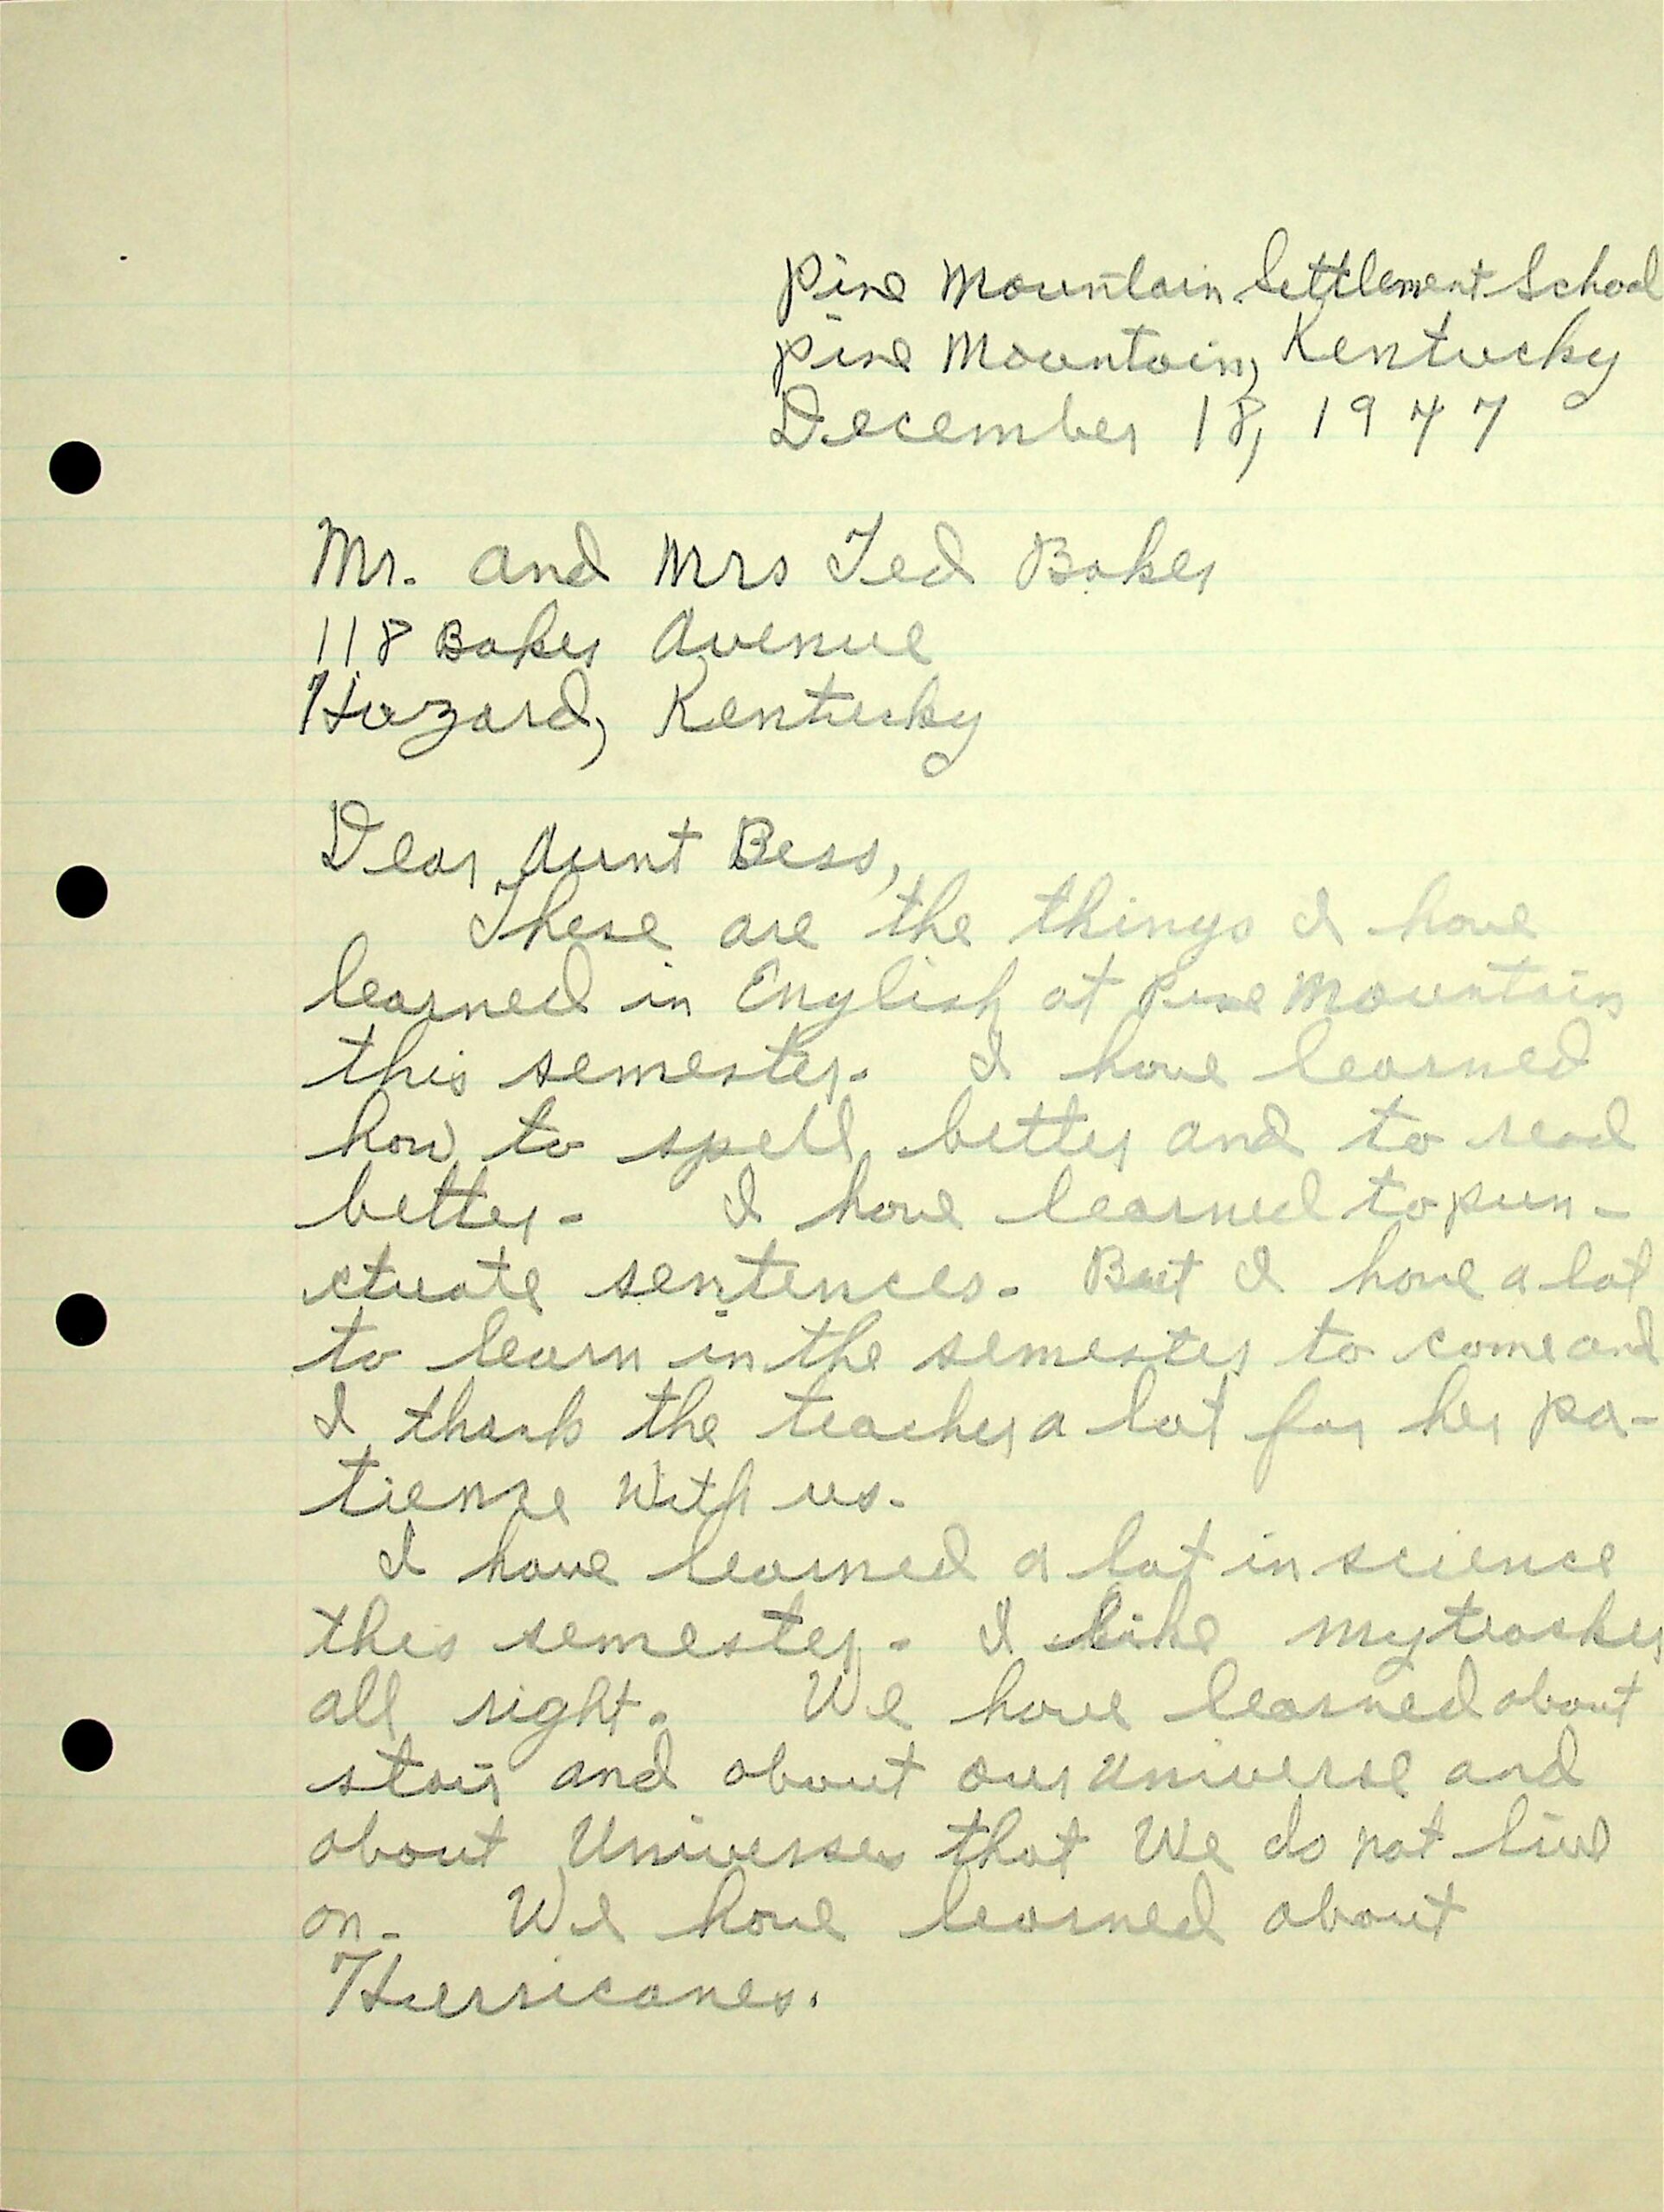 Pine Mountain Settlement School
Pine Mountain, Kentucky
December 18, 1947
Mr. and Mrs Ted Baker
118 Baker Avenue
Hazard, Kentucky
Dear Aunt Bess,
These are the things I have
learned in English at Pine Mountain
this semester. I have learned
how to spell better and to read
better. I have learned to pun-
ctuate sentences. But I have a lot
to learn in the semester to come and
I thank the teacher a lot for her pa-
tience with us.
I have learned a lot in science
this semester. I like my teacher
all right. We have learned about
stars and about our universe and
about Universes that We do not live
on. We have learned about
Hurricanes.